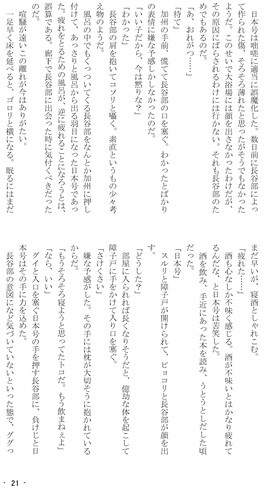 日本号は咄嗟に適当に誤魔化した。数日前に長谷部によっ
て作られた傷、そろそろ薄れたと思ったがそうでもなかった
ようだ。このせいで大浴場には顔を出さなかったわけだが、
その原因にばらされるわけには行かない。それも長谷部のた
めでもあるのだ。
「あ、おれがっ……」
「待て」
加州の手前、慌てて長谷部の口を塞ぐ。わかったとばかり
の表情に嫌な予感しかしなかったのだ。
「いい子だから、今は黙りな?」
「わかった」
長谷部の肩を抱いてコソリと囁く。素直というものの少々考
え物のようだ。
風呂の中でもくっついてくる長谷部をなんとか加州に押し
付けて、あっさりと風呂から出る羽目になった日本号であっ
た。疲れをとるための風呂が、逆に疲れることになろうとは、
誤算である。廊下で長谷部に出会った時に気付くべきだった
喧騒が遠いこの離れが今はありがたい。
一足早く床を延べると、ゴロリと横になる。眠るにはまだ
まだ早いが、寝酒としゃれこむ。
「疲れた……」
酒も心なしか不味く感じる。酒が不味いとはかなり疲れて
るんだな、と日本号は苦笑した。
酒を飲み、手近にあった本を読み、うとうとしだした頃
だった。
「日本号」
スルリと障子戸が開けられて、ピョコリと長谷部が顔を出
す。
「どうした?」
部屋に入られれば長くなりそうだと、億劫な体を起こして
障子戸に手をかけて入り口を塞ぐ。
「さけくさい」
嫌な予感がした。その手には枕が大切そうに抱かれている
からだ。
「もうそろそろ寝ようと思ってたトコだ。もう飲まねぇよ」
「なら、いい」
グイと入口を塞ぐ日本号の手を押す長谷部に、負けじと日
本号はその手に力を込めた。
長谷部の意図になど気づいていないといった態で、ググっ
・21・